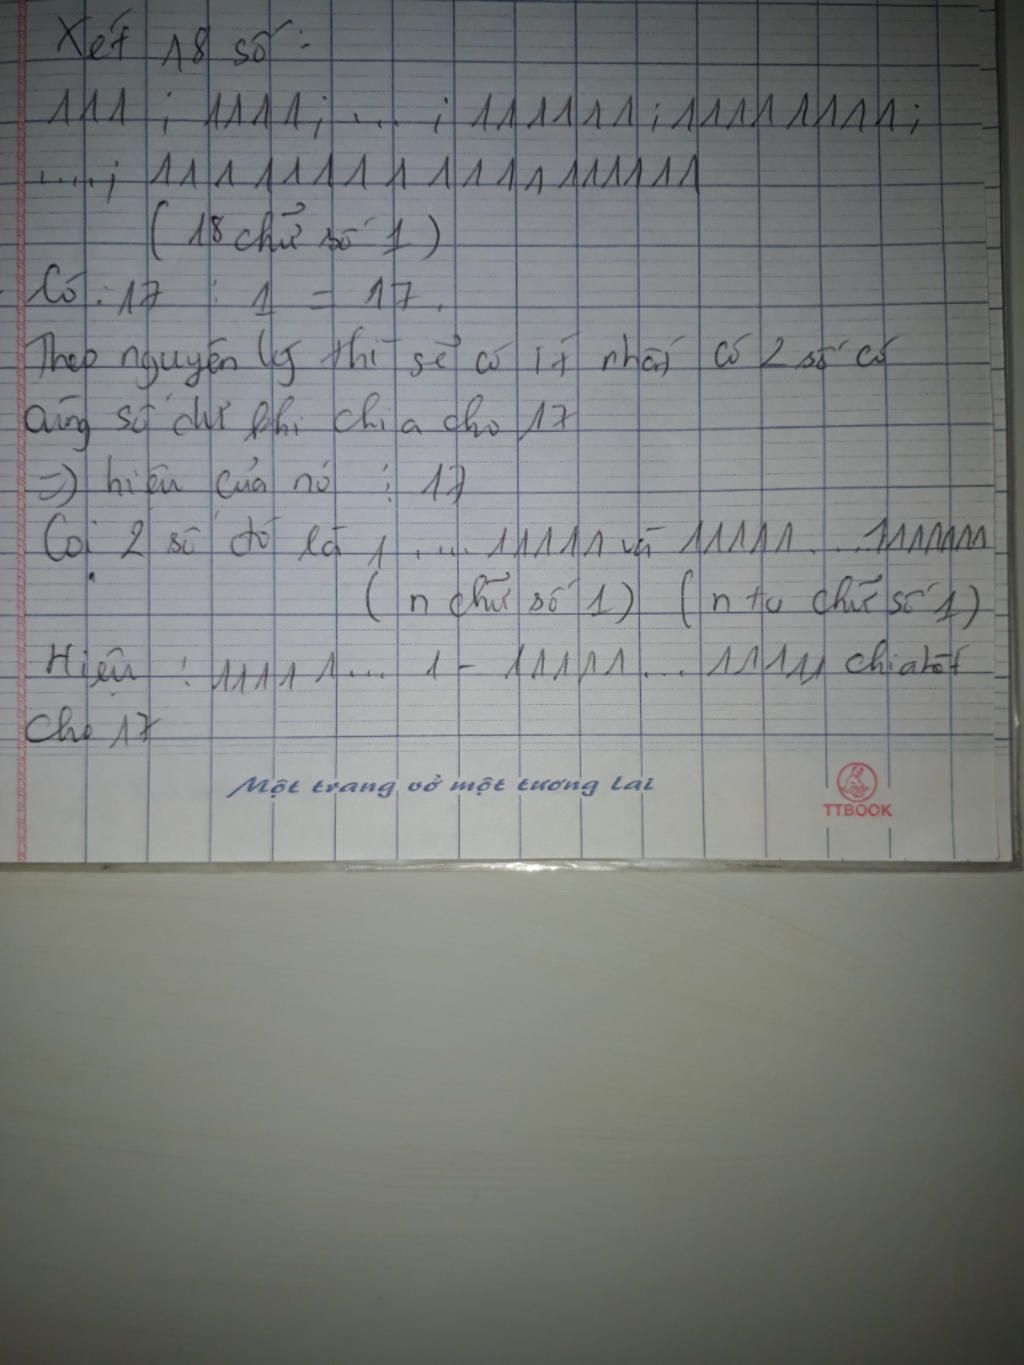 Xét 18 số:
111 ; 1111; ... ; 111111; 11111111;
....; 111111111111111111
(18 chữ số 1)
Có: 17 : 1 = 17.
Theo nguyên lý thì sẽ có ít nhất có 2 số có
cùng số dư khi chia cho 17
=> hiệu của nó ⋮ 17
Coi 2 số đó là 1....11111 và 11111...1111111
(n chữ số 1) (n chữ số 1)
Hiệu : 11111... 1 - 11111...11111 chia hết
cho 17
Một trang vở một tương lai
TTBOOK